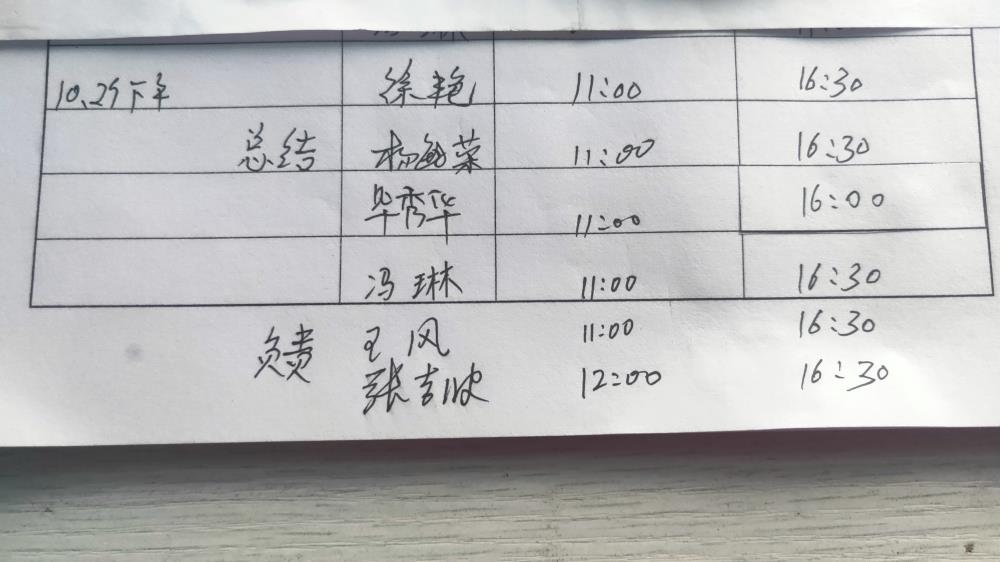 10.25下午 徐艳 11:00 16:30
总结 杨敏菜 11:00 16:30
毕秀华 11:00 16:00
冯琳 11:00 16:30
负责 王风 11:00 16:30
张吉 12:00 16:30